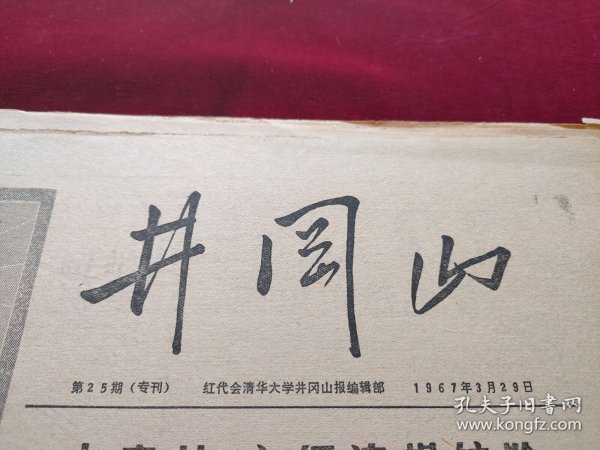 井冈山
第25期（专刊） 红代会清华大学井冈山报编辑部 1967年3月29日
孔夫子旧书网